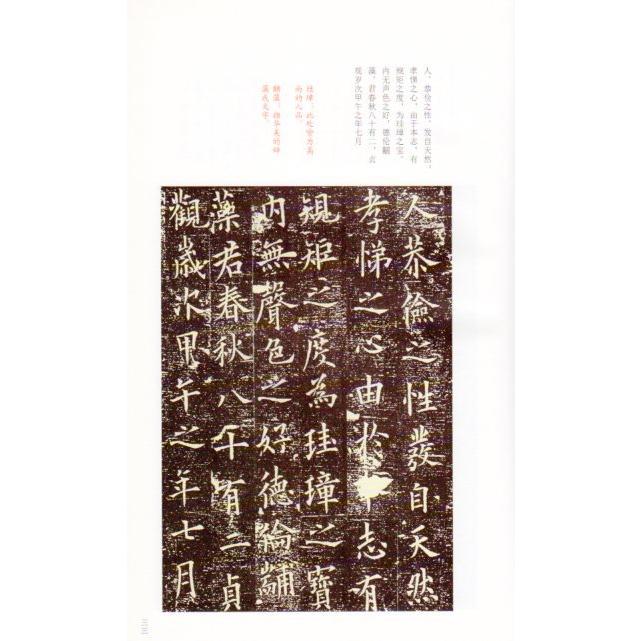 人、恭俭之性，发自天然。
孝悌之心，由于本志。有
规矩之度，为珪璋之宝。
内无声色之好，德伦黼
藻。君春秋八十有二，贞
观岁次甲午之年七月
珪璋：此处喻为高
尚的人品。
黼藻：指华美的辞
藻或文字。
人恭儉之性發自天然
孝悌之心由於本志有
規矩之度為珪璋之寶
內無聲色之好德綸黼
藻君春秋八十有二貞
觀歲次甲午之年七月